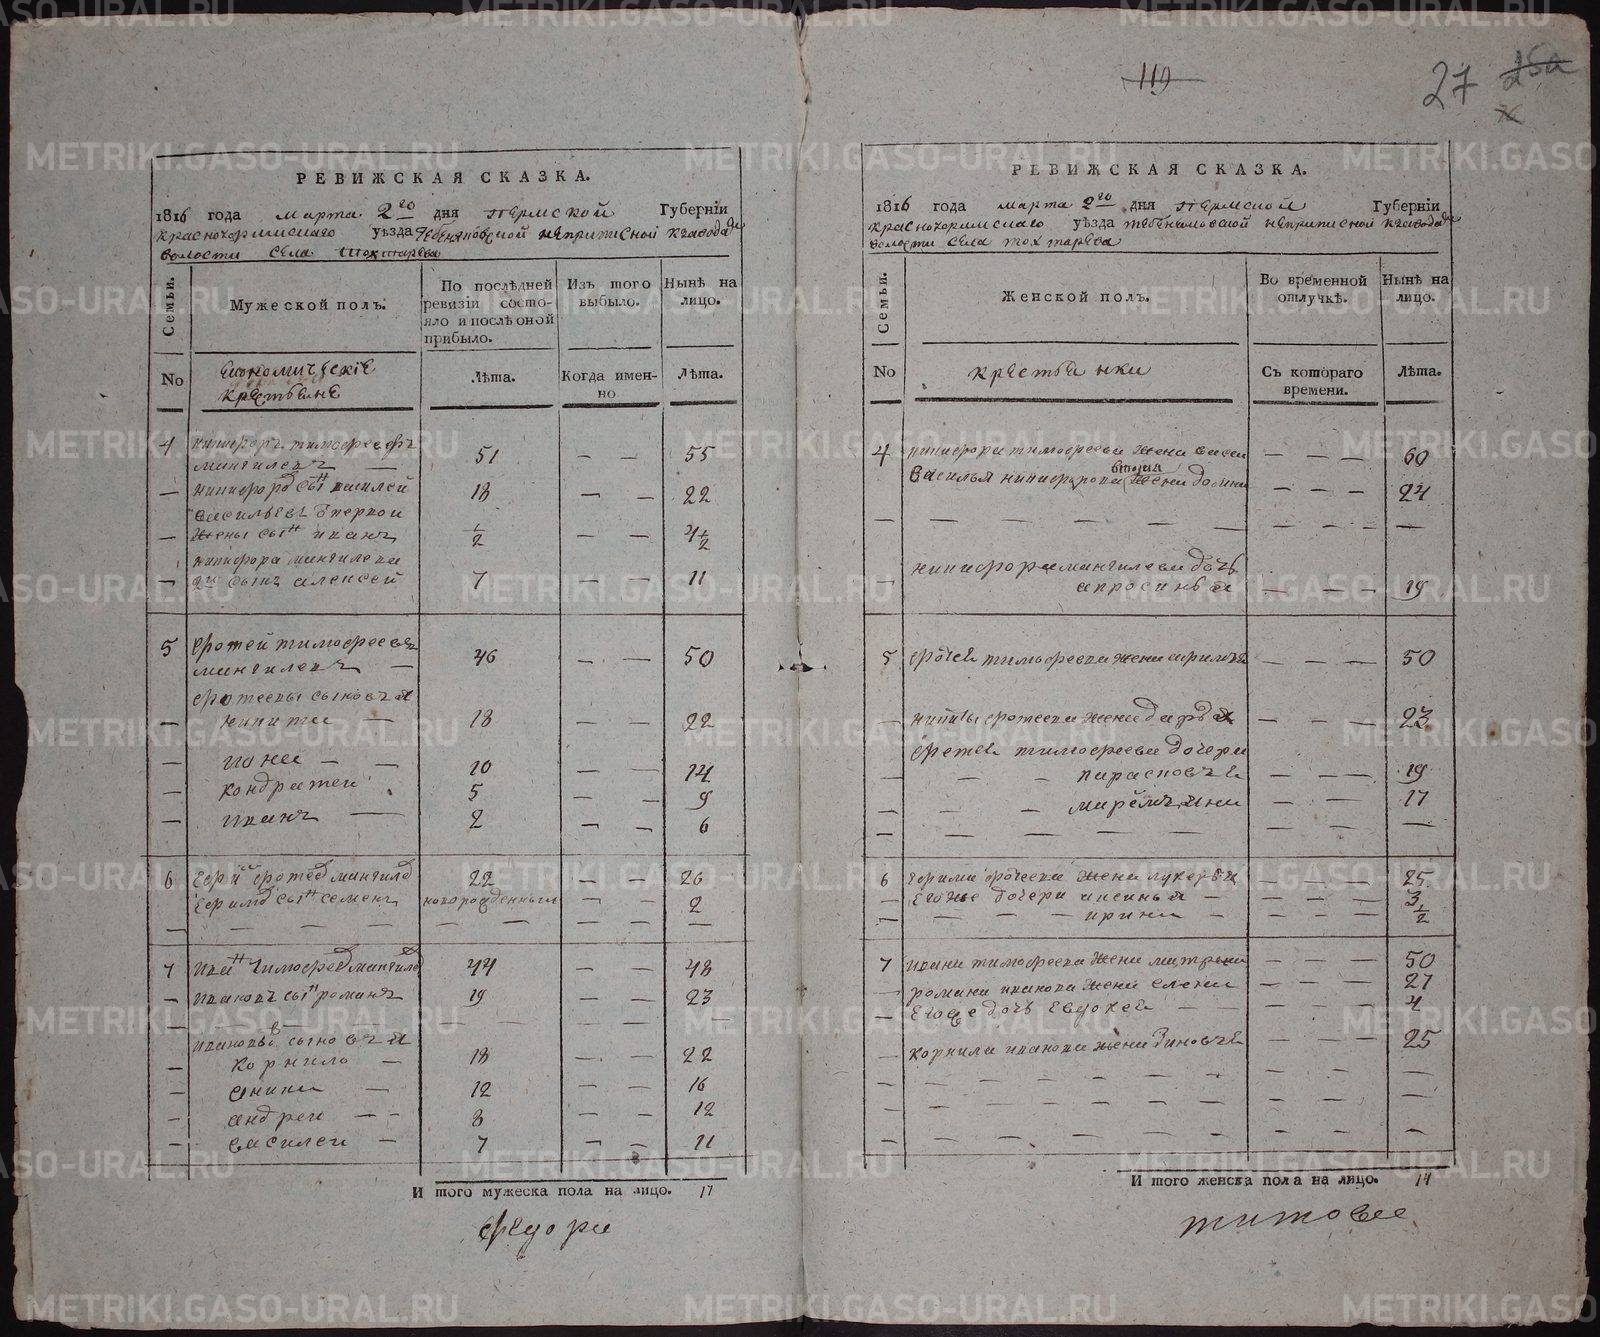 119
27 25а
РЕВИЖСКАЯ СКАЗКА.
1816 года марта 2го дня пермской Губерніи
красноуфимскаго уѣзда неприписной
волости села тохтарева
Семьи.
Мужеской полъ.
По послѣдней ревизіи состояло и послѣ оной прибыло.
Изъ того выбыло.
Нынѣ на лицо.
No
економическіе крестьяне
Лѣта.
Когда именно
Лѣта.
4 никифоръ тимофеевъ
мингилевъ — 51 — — 55
— никифоровъ сынъ василей 18 — — 22
васильевъ от первой
— жены сынъ иванъ 1/2 — — 4 1/2
никифора мингилева
— 2й сынъ алексей 7 — — 11
5 фотей тимофеевъ
мингилевъ — 46 — — 50
фотеевы сыновья
— никита — 18 — — 22
— — — 10 — — 14
— кондратей 5 — — 9
— иванъ — 2 — — 6
6 ефимъ фотеевъ мингилевъ 22 — — 26
ефимовъ сынъ семенъ новорожденным — — 2
— — — — — — — — —
7 иванъ тимофеевъ мингилевъ 44 — — 48
— ивановъ сынъ романъ 19 — — 23
— — — — — — —
ивановы сыновья
— корнило — 18 — — 22
— — 12 — — 16
— андреи — — 8 — — 12
— василеи — 7 — — 11
И того мужеска пола на лицо. 17
федора
РЕВИЖСКАЯ СКАЗКА.
1816 года марта 2го дня пермской Губерніи
красноуфимскаго уѣзда неприписной
волости села тохтарева
Семьи.
Женской полъ.
Во временной отлучкѣ.
Нынѣ на лицо.
No
крестьянки
Съ котораго времени.
Лѣта.
4 никифора тимофеева жена — — — 60
василья никифорова вторая жена — — — 24
— — — — — — — — —
никифора мингилева дочь
— апросинья — — — 19
5 фотея тимофеева жена — — — 50
— никиты фотеева жена дарья — — — 23
фотея тимофеева дочери
— — — парасковья — — — 19
— — — — — 17
— — — — — — — — —
6 ефима фотеева жена лукерья — — — 25
— его же дочери аксинья — — — — 3
— — — ирина — — — — 1/2
7 ивана тимофеева жена матрена — — — 50
— романа иванова жена елена — — — 27
— его же дочь евдокея — — — 4
— корнила иванова жена зиновья — — — 25
— — — — — — — — —
— — — — — — — — —
— — — — — — — — —
И того женска пола на лицо. 14
титова